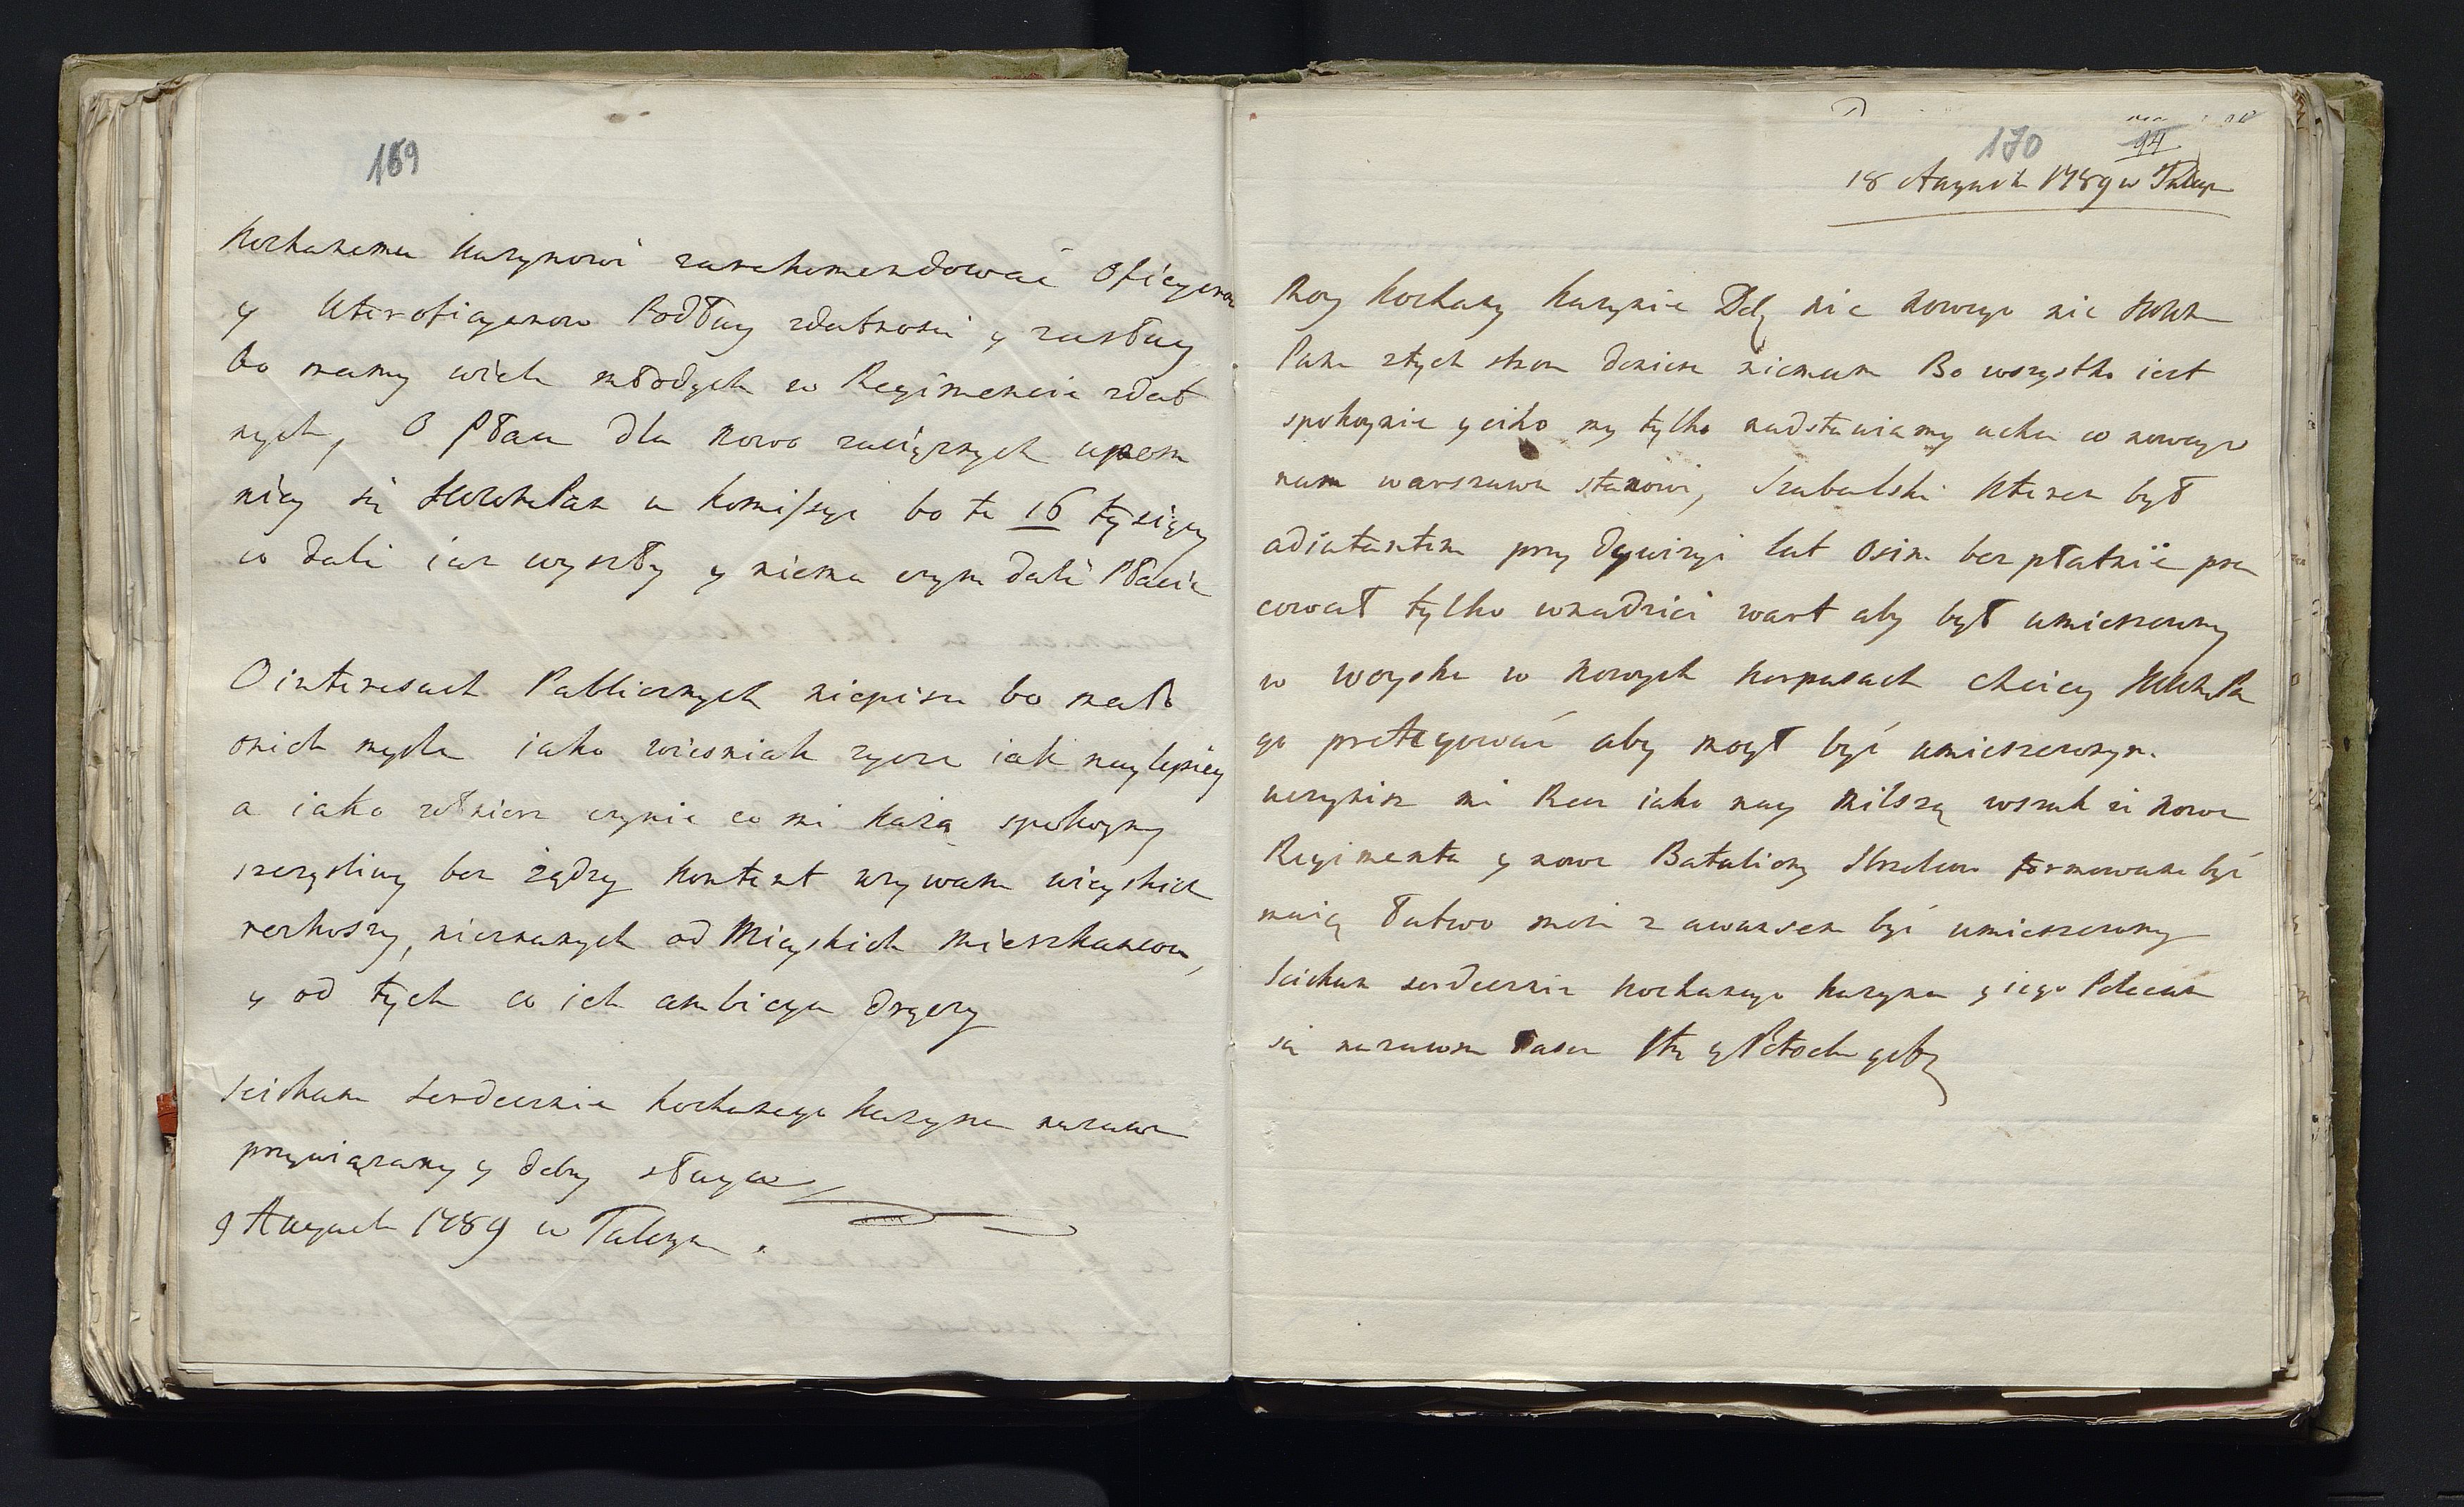 169
Kochanemu Kuzynowi zarekomendować Oficyerow
y Unterofficyerow Podług zdatnosci y zasług
bo mamy wiele młodych w Regimencie zdat
nych, O płace dla nowo zaciężnych upom
niey się JWWMPan w Komissyi bo te 16 tysięcy
co dali iuz wyszły y niema czym dali Płacić
O interesach Publicznych niepisze bo mało
onich mysle iako wiesniak zycze iak naylepiey
a iako zołnierz czynie co mi każą spokoyny
szczęsliwy bez żądzy kontent uzywam wieyskich
roskoszy, nieznanych od Mieyskich Mieszkancow,
y od tych co ich ambicya dręczy
Sciskam serdecznie kochanego Kuzyna nazawsze
przywiązany y dobry sługa
9 Augusta 1789 w Tulczyn.
170
94
18 Augusta 1789 w Tulczyn
Moy Kochany Kuzynie Dobr nic nowego nie
Panu ztych stron doniesc niemam Bo wszystko iest
spokoynie y cicho my tylko nadstawiamy ucha co nowego
nam warszawa stanowi, Szubalski Ktoren był
adiutantem przy Dywizyi lat osim bez płatnie pra
cował tylko wnadzici wart aby był umieszczony
w woysku w nowych korpusach chciey JWWMPa
go protegować aby mogł być umieszczonym.
uczynisz mi Rzecz iako nay milszą wszak ze nowe
Regimenta y nowe Bataliony Strzelcow formowane być
maią łatwo może z awansem być umieszczony
Sciskam serdecznie kochanego kuzyna y iego Polecam
się nazawsze łasce